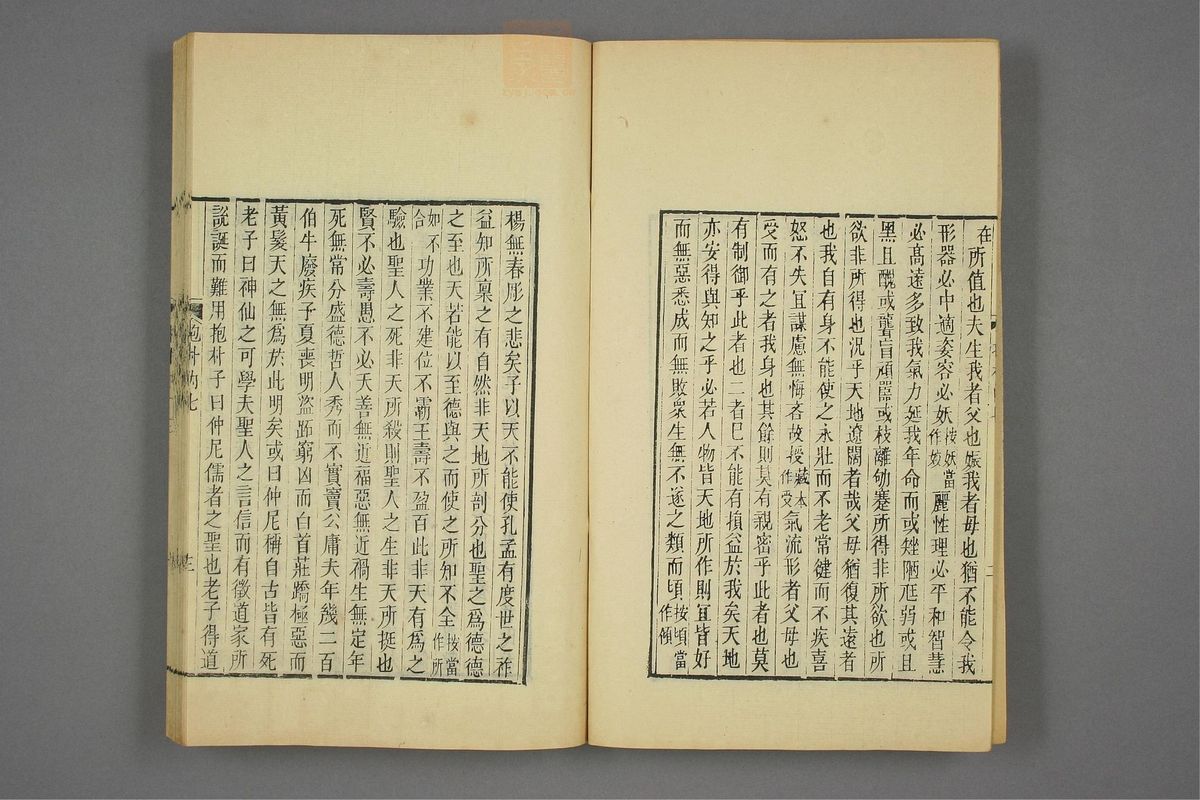 在所值也夫生我者父也娠我者母也猶不能令我
形器必中適姿容必妖按妖當作姣麗性理必平和智慧
必髙遠多致我氣力延我年命而或矬陋尫弱或且
黑且醜或聾盲頑嚚或枝離劬蹇所得非所欲也所
欲非所得也況乎天地遼闊者哉父母猶復其遠者
也我自有身不能使之永壯而不老常健而不疾喜
怒不失宜謀慮無悔吝故授藏本作受氣流形者父母也
受而有之者我身也其餘則莫有親密乎此者也莫
有制御乎此者也二者已不能有損益於我矣天地
亦安得與知之乎必若人物皆天地所作則宜皆好
而無惡悉成而無敗衆生無不遂之類而頃按頃當作傾
楊無春彫之悲矣子以天不能使孔孟有度世之祚
益知所禀之有自然非天地所剖分也聖之爲德德
之至也天若能以至德與之而使之所知不全按當作所
如不合功業不建位不霸王壽不盈百此非天有爲之
驗也聖人之死非天所殺則聖人之生非天所挺也
賢不必壽愚不必夭善無近福惡無近禍生無定年
死無常分盛德哲人秀而不實竇公庸夫年幾二百
伯牛廢疾子夏喪明盜跖窮凶而白首莊蹻極惡而
黃髮天之無爲於此明矣或曰仲尼稱自古皆有死
老子曰神仙之可學夫聖人之言信而有徵道家所
說誕而難用抱朴子曰仲尼儒者之聖也老子得道
抱朴內七
三